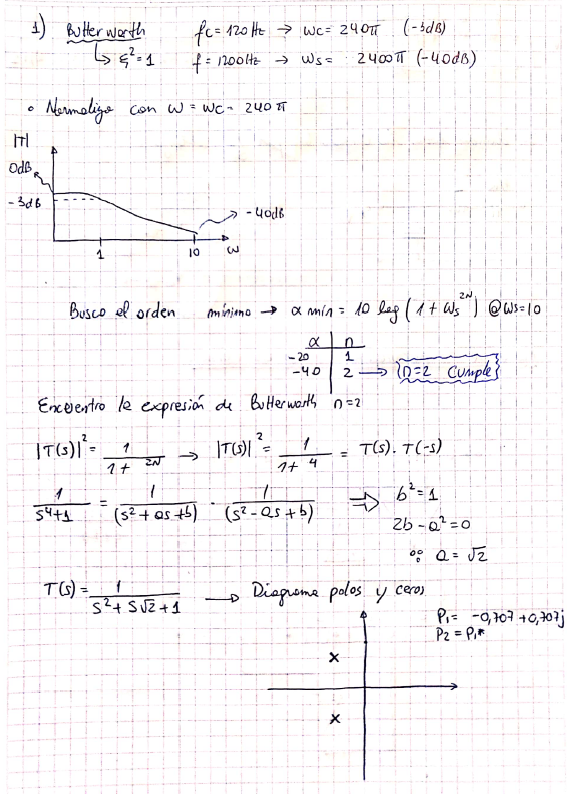 1) Butterworth fc = 120 Hz → wc = 240π (-3dB)
↳ ξ² = 1 f = 1200Hz → ws = 2400π (-40dB)
• Normalizo con w = wc = 240π
|T|
0dB
-3dB
-40dB
1 10 w
Busco el orden mínimo → α min = 10 log (1 + ws^2N) @ws=10
α | n
-20 | 1
-40 | 2 → n=2 cumple
Encuentro la expresión de Butterworth n=2
|T(s)|² = 1/(1+ ^2N) → |T(s)|² = 1/(1+ ^4) = T(s) . T(-s)
1/(s⁴+1) = 1/(s² + as + b) . 1/(s² - as + b) ⇒ b² = 1
2b - a² = 0
∴ a = √2
T(s) = 1/(s² + s√2 + 1) → Diagrama polos y ceros
P1 = -0,707 + 0,707j
P2 = P1*
x
x